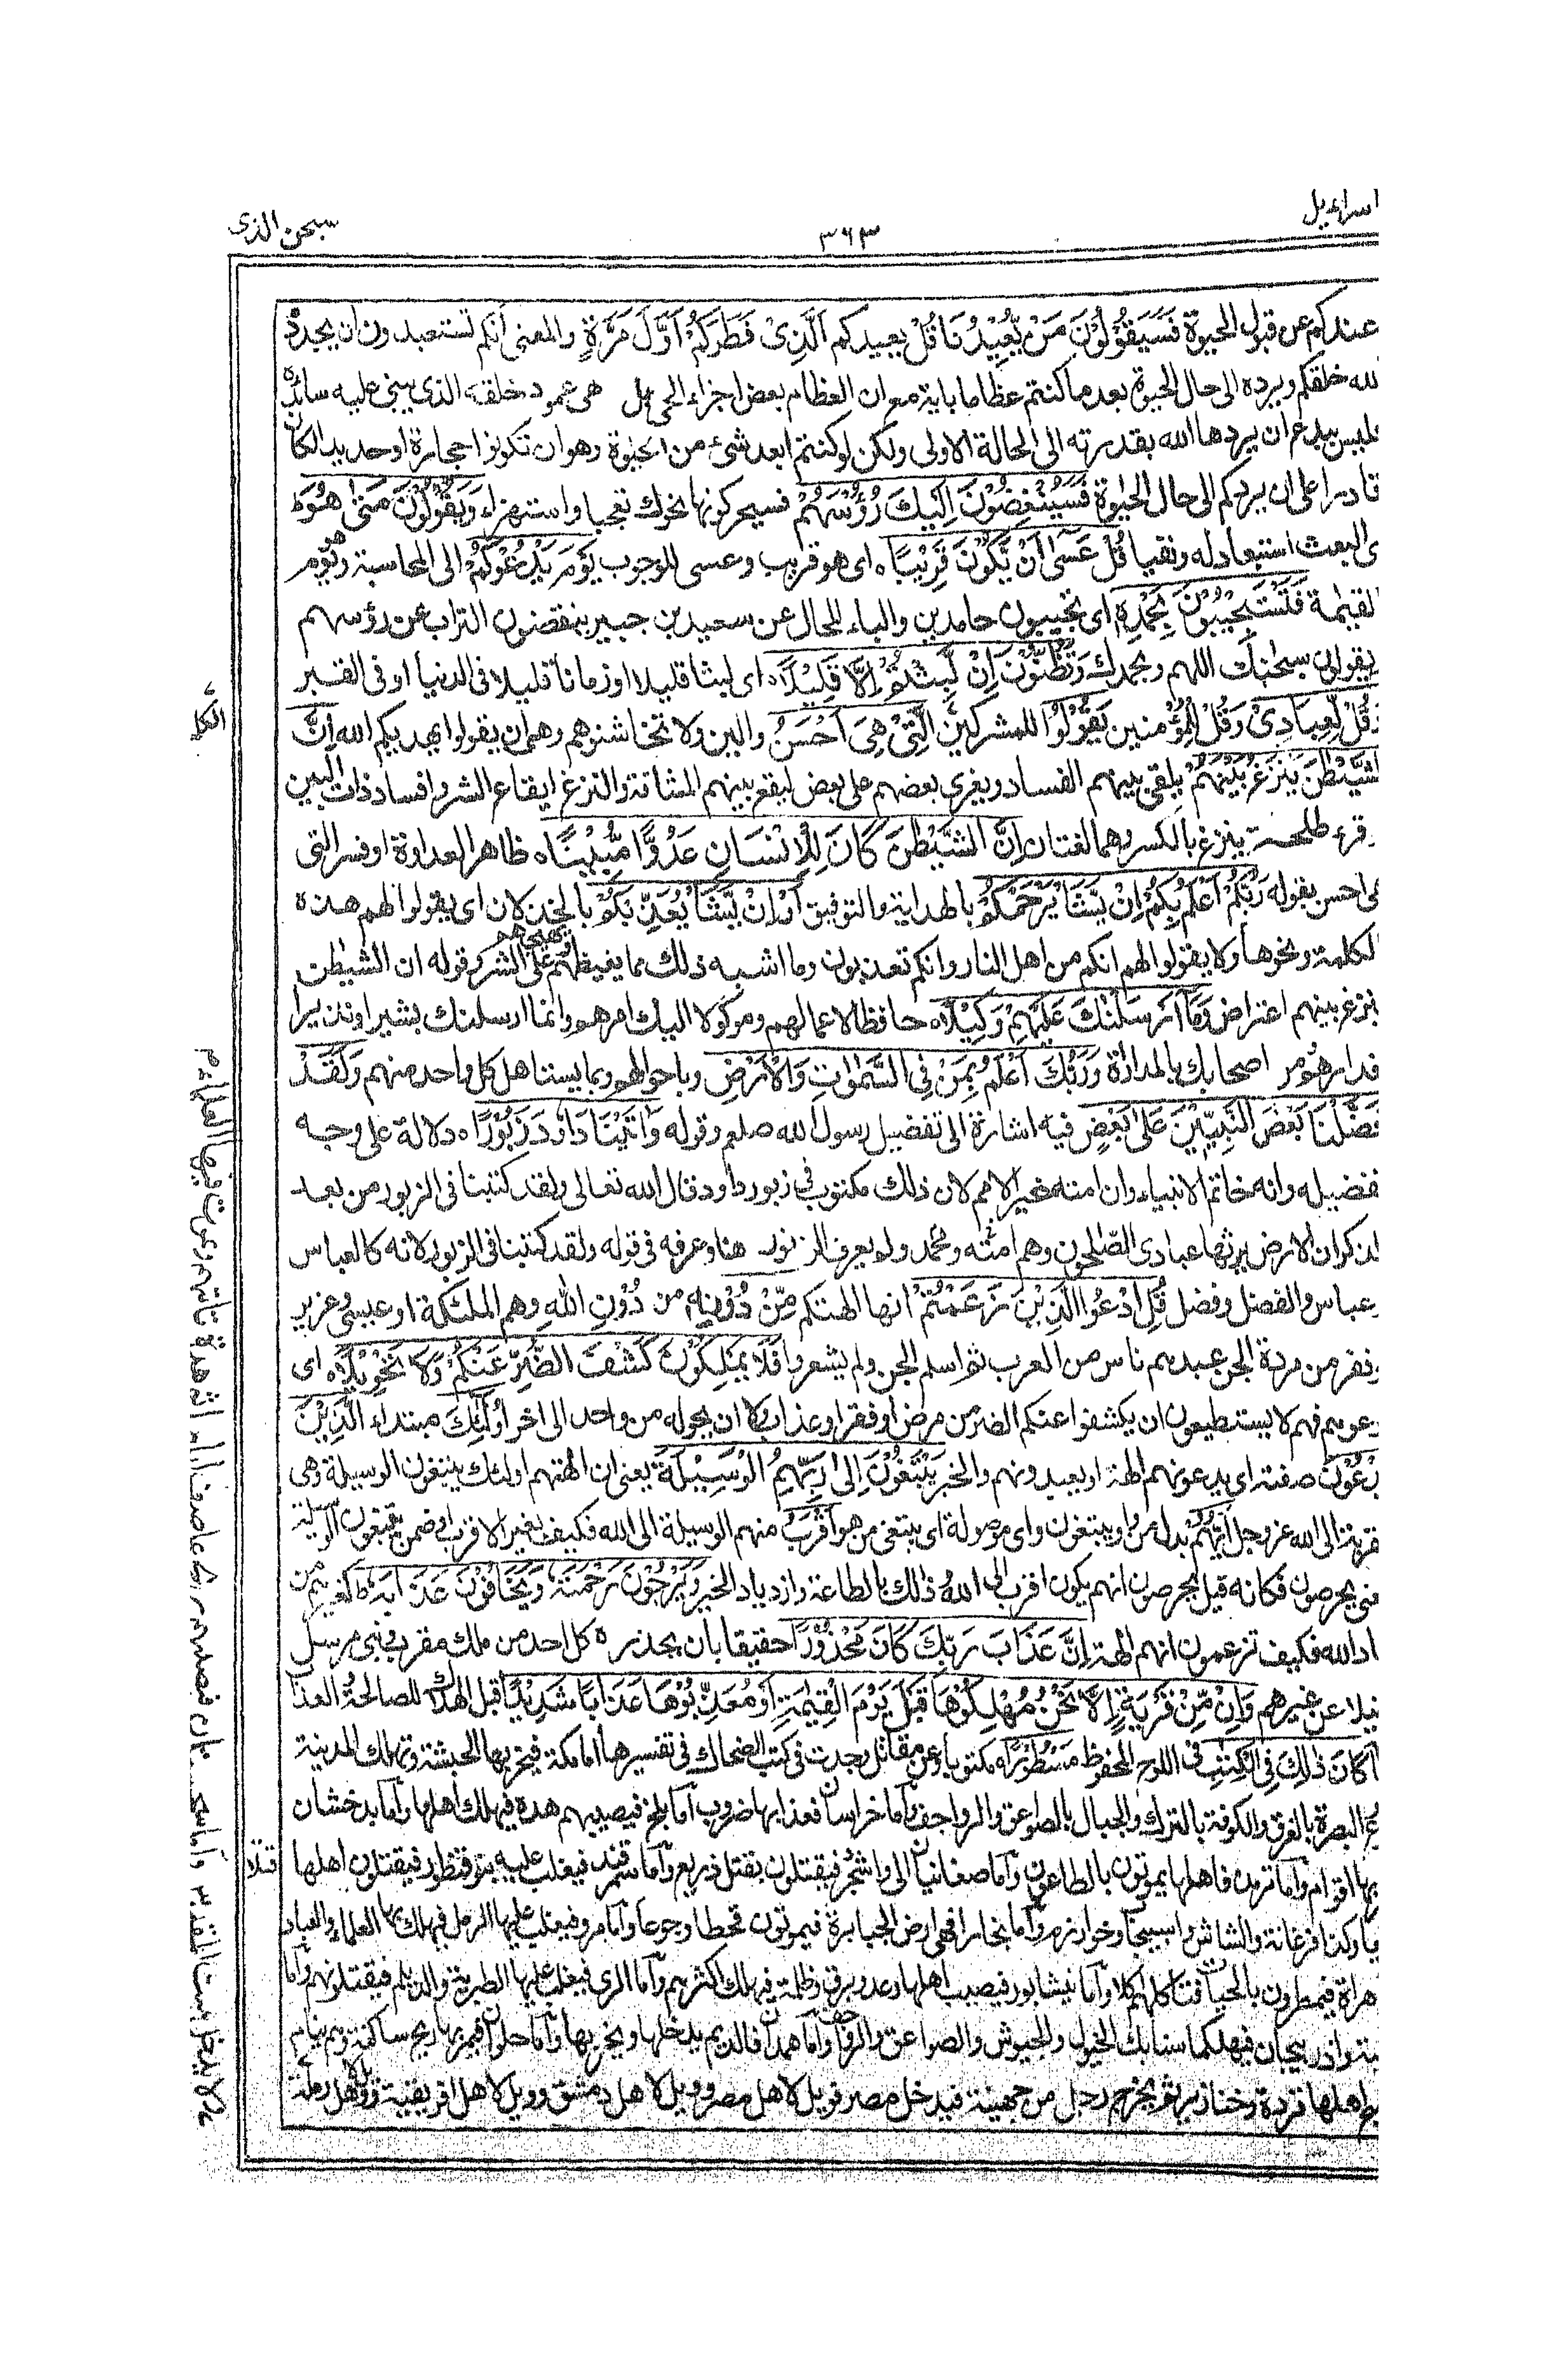 اسراءيل
٣٦٣
سبحن الذى
عندكم عن قبول الحيوة فَسَيَقُوْلُوْنَ مَنْ يُّعِيْدُنَا قُلْ يعيدكم الَّذِىْ فَطَرَكُمْ اَوَّلَ مَرَّةٍ والمعنى انكم تستبعدون ان يجدد
لله خلقكم ويرده الى حال الحيوة بعد ما كنتم عظاما بالية مع ان العظام بعض اجزاء الحى بل هى عمود خلقه الذى يبنى عليه سائره
فليس ببدع ان يردها الله بقدرته الى الحالة الاولى ولكن لو كنتم ابعد شئ من الحيوة وهو ان تكونوا حجارة او حديدا لكان
قادرا على ان يردكم الى حال الحيوة فَسَيُنْغِضُوْنَ اِلَيْكَ رُؤُسَهُمْ فسيحركونها نحوك تعجبا واستهزاء وَيَقُوْلُوْنَ مَتٰى هُوَ ط
اى البعث استبعادا له ونفيا قُلْ عَسٰٓى اَنْ يَّكُوْنَ قَرِيْبًا ه اى هو قريب وعسى للوجوب يَوْمَ يَدْعُوْكُمْ الى المحاسبة وهو يوم
القيمة فَتَسْتَجِيْبُوْنَ بِحَمْدِهٖ اى تجيبون حامدين والباء للحال عن سعيد بن جبير ينفضون التراب عن رؤسهم
ويقولون سبحنك اللهم وبحمدك وَتَظُنُّوْنَ اِنْ لَّبِثْتُمْ اِلَّا قَلِيْلًا ه اى لبثا قليلا او زمانا قليلا فى الدنيا او فى القبر
وَقُلْ لِّعِبَادِىْ وَقُلْ للمؤمنين يَقُوْلُوا للمشركين الَّتِىْ هِىَ اَحْسَنُ والين ولا تخاشنوهم وهى ان يقولوا يهديكم الله اِنَّ
الشَّيْطٰنَ يَنْزَغُ بَيْنَهُمْ يلقى بينهم الفساد ويغرى بعضهم على بعض ليقع بينهم المشاقة والنزغ ايقاع الشر وافساد ذات البين
وقرء طلحة ينزغ بالكسر وهما لغتان اِنَّ الشَّيْطٰنَ كَانَ لِلْاِنْسَانِ عَدُوًّا مُّبِيْنًا ه ظاهر العداوة او فسر التى
هى احسن بقوله رَبُّكُمْ اَعْلَمُ بِكُمْ اِنْ يَّشَاْ يَرْحَمْكُمْ بالهداية والتوفيق اَوْ اِنْ يَّشَاْ يُعَذِّبْكُمْ بالخذلان اى يقولوا لهم هذه
الكلمة ونحوها ولا يقولوا لهم انكم من اهل النار وانكم تعذبون وما اشبه ذلك مما يغيظهم ويهيجهم على الشر وقوله ان الشيطن
ينزغ بينهم اعتراض وَمَآ اَرْسَلْنٰكَ عَلَيْهِمْ وَكِيْلًا ه حافظا لاعمالهم وموكولا اليك امرهم وانما ارسلنك بشيرا ونذيرا
فدارهم ومر اصحابك بالمداراة وَرَبُّكَ اَعْلَمُ بِمَنْ فِى السَّمٰوٰتِ وَالْاَرْضِ وباحوالهم وبما يستاهل كل واحد منهم وَلَقَدْ
فَضَّلْنَا بَعْضَ النَّبِيّٖنَ عَلٰى بَعْضٍ فيه اشارة الى تفضيل رسول الله صلعم وقوله وَاٰتَيْنَا دَاوٗدَ زَبُوْرًا ه دلالة على وجه
تفضيله وانه خاتم الانبياء وان امته خير الامم لان ذلك مكتوب فى زبور داود قال الله تعالى ولقد كتبنا فى الزبور من بعد
الذكر ان الارض يرثها عبادى الصلحون وهم محمد وامته ولم يعرف الزبور هنا وعرفه فى قوله ولقد كتبنا فى الزبور لانه كالعباس
وعباس والفضل وفضل قُلِ ادْعُوا الَّذِيْنَ زَعَمْتُمْ انها الهتكم مِّنْ دُوْنِهٖ من دُوْنِ الله وهم الملئكة او عيسى وعزير
او نفر من مردة الجن عبدهم ناس من العرب ثم اسلم الجن ولم يشعروا فَلَا يَمْلِكُوْنَ كَشْفَ الضُّرِّ عَنْكُمْ وَلَا تَحْوِيْلًا ه اى
ادعوهم فهم لا يستطيعون ان يكشفوا عنكم الضر من مرض او فقر او عذاب ولا ان يحولوه من واحد الى اخر اُولٰٓئِكَ مبتداء الَّذِيْنَ
يَدْعُوْنَ صفته اى يدعونهم الهة او يعبدونهم والخبر يَبْتَغُوْنَ اِلٰى رَبِّهِمُ الْوَسِيْلَةَ يعنى ان الهتهم اولئك يبتغون الوسيلة وهى
القربة الى الله عز وجل اَيُّهُمْ بدل من واو يبتغون واى موصولة اى يبتغى من هو اَقْرَبُ منهم الوسيلة الى الله فكيف بغير الاقرب او ضمن يبتغون الوسيلة
معنى يحرصون فكانه قيل يحرصون ايهم يكون اقرب الى الله وذلك بالطاعة وازدياد الخير وَيَرْجُوْنَ رَحْمَتَهٗ وَيَخَافُوْنَ عَذَابَهٗ كغيرهم من
عباد الله فكيف تزعمون انهم الهة اِنَّ عَذَابَ رَبِّكَ كَانَ مَحْذُوْرًا حقيقا بان يحذره كل احد من ملك مقرب ونبى مرسل
فضلا عن غيرهم وَاِنْ مِّنْ قَرْيَةٍ اِلَّا نَحْنُ مُهْلِكُوْهَا قَبْلَ يَوْمِ الْقِيٰمَةِ اَوْ مُعَذِّبُوْهَا عَذَابًا شَدِيْدًا قيل الهلاك للصالحة والعذا
كَانَ ذٰلِكَ فِى الْكِتٰبِ فى اللوح المحفوظ مَسْطُوْرًا ه مكتوبا وعن مقاتل وجدت فى كتب الضحاك فى تفسيرها اما مكة فيخربها الحبشة وتهلك المدينة
البصرة بالغرق والكوفة بالترك والجبال بالصواعق والرواجف واما خراسان فعذابها ضروب اما بلخ فيصيبهم هدة فيهلك اهلها واما بدخشان
بها اقوام واما ترمذ فاهلها يموتون بالطاعون واما صغانيان الى واشجرد فيقتلون بقتل ذريع واما سمرقند فيغلب عليه بنو قنطورا فيقتلون اهلها قتلا
وكذا فرغانة والشاش واسبيجاب وخوارزم واما بخارا فهى ارض الجبابرة فيموتون قحطا وجوعا واما مرو فيغلب عليها الرمل فيهلك بها العلماء والعباد
هراة فيمطرون بالحيات فتاكلهم اكلا واما نيشابور فيصيب اهلها رعد وبرق وظلمة فيهلك اكثرهم واما الرى فيغلب عليها الطبرية والديلم فيقتلونهم واما
واذربيجان فيهلكها سنابك الخيول والجيوش والصواعق والرواجف واما همدان فالديلم يدخلها ويخربها واما حلوان فيمر بها ريح ساكنة وهم نيام
اهلها قردة وخنازير ثم يخرج رجل من جهينة فيدخل مصر فويل لاهل مصر وويل لاهل دمشق وويل لاهل افريقية وويل لاهل رملة